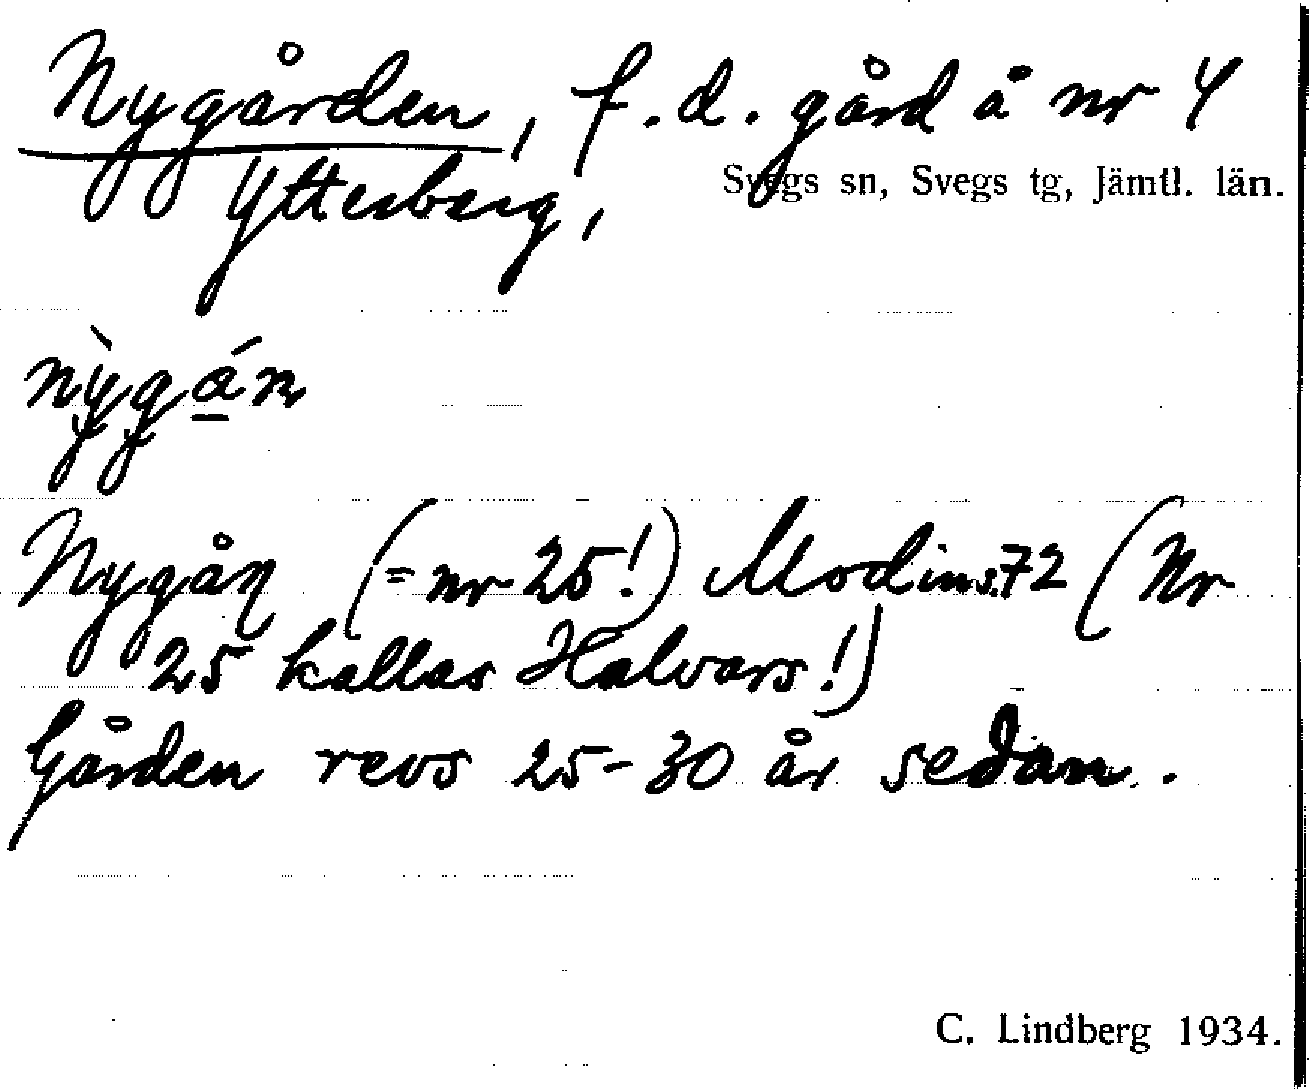 Nygården, f.d. gård å nr 4
Ytterberg, Svegs sn, Svegs tg, Jämtl. län.
nỳgán
Nygån (= nr 25!) Modin s. 72 (Nr
25 kallas Halvars!)
Gården revs 25-30 år sedan.
C. Lindberg 1934.